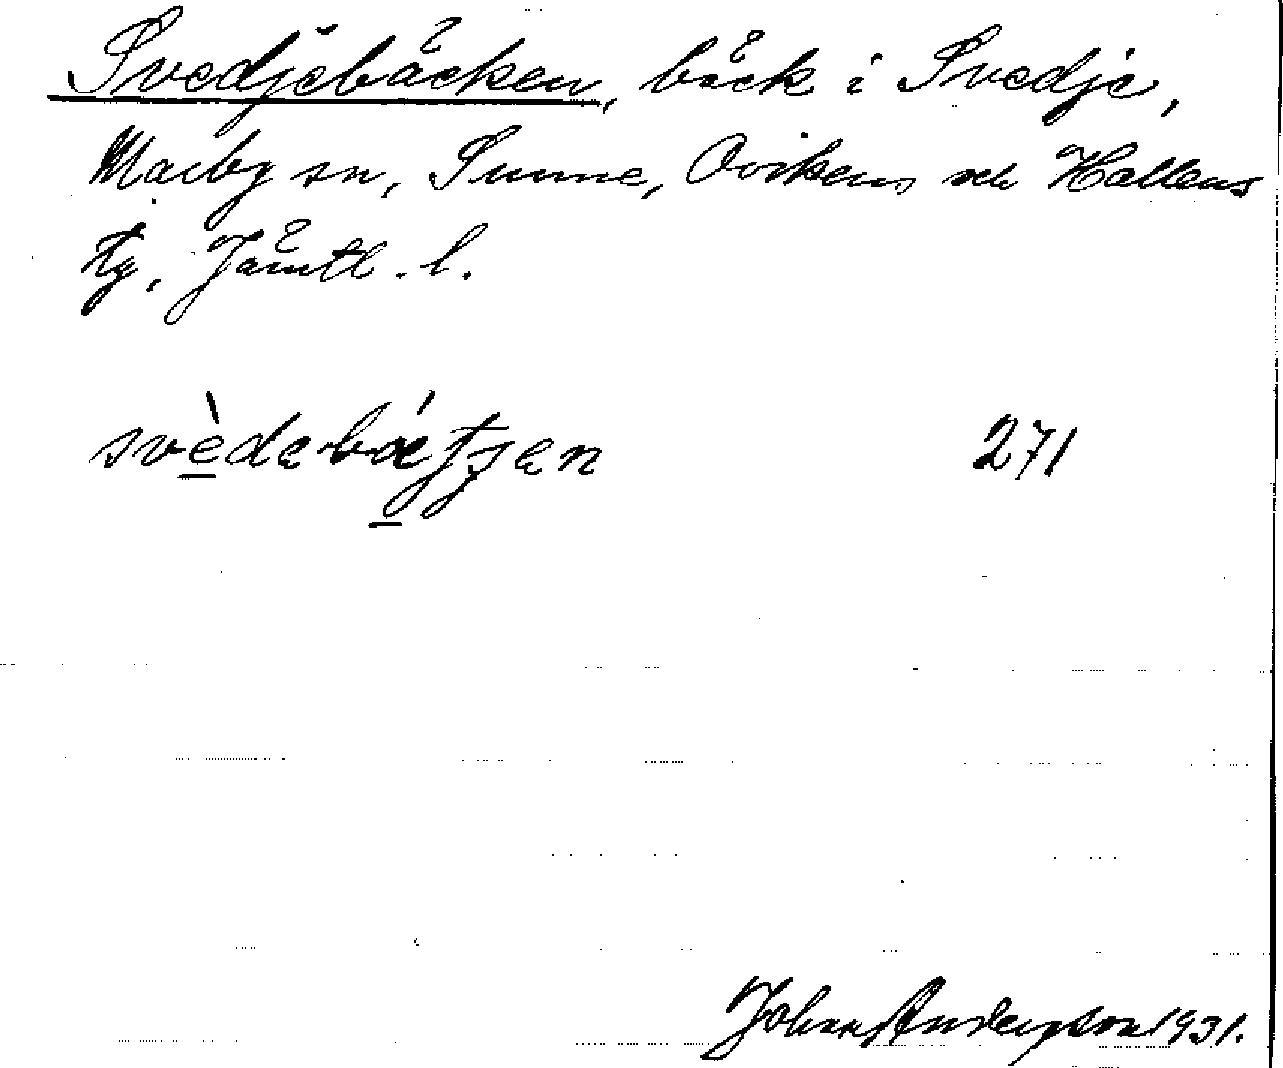 Svedjebäcken, bäck i Svedje,
Marby sn, Sunne, Ovikens och Hallens
tg, Jämtl. l.
271
Johan Anderson 1931.